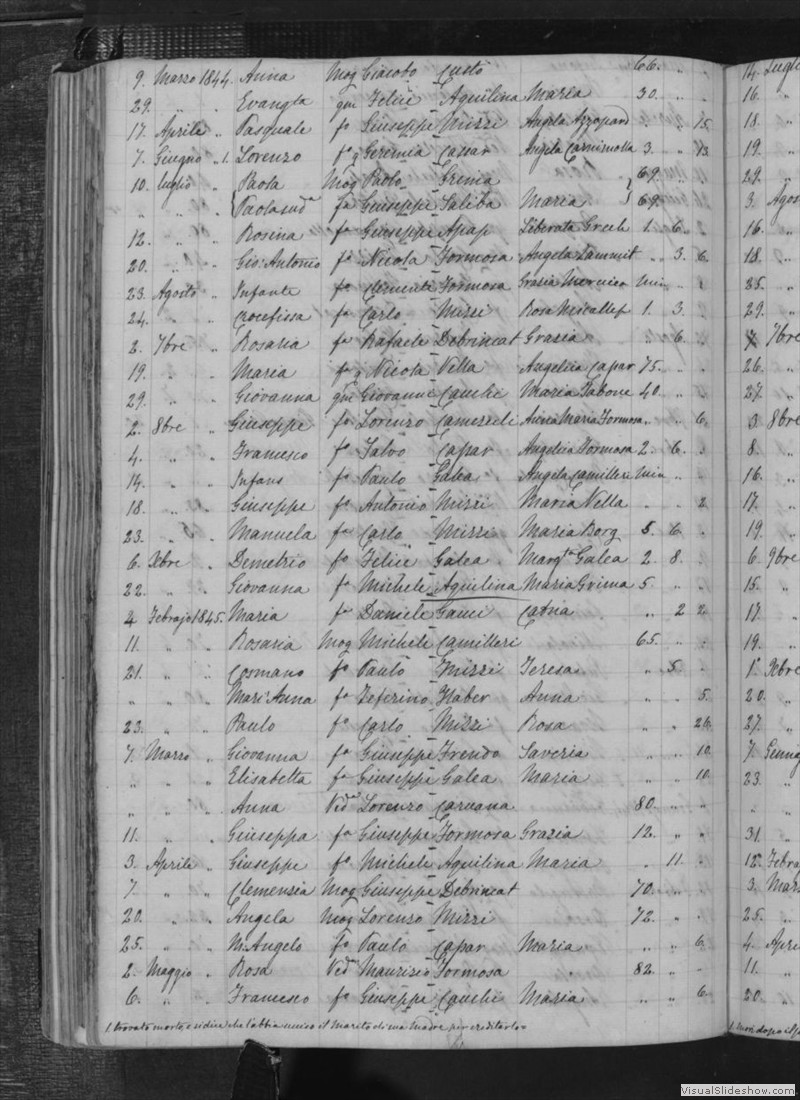 9. Marzo 1844. Anna Mog Giacobo Custo 66. " "
29. " " Evangta qm Felice Aquilina Maria 30. " "
17. Aprile " Pasquale fo Giuseppe Mizzi Angela Azzopard " " 15
7. Giugno " 1. Lorenzo fo q Geremia Cassar Angela 3. " 13
10. luglio " Paola Mog Paolo Grima 69. "
" " " Paola suda fa Giuseppe Saliba Maria 69. "
12. " " Rosina fa Giuseppe Apap Liberata Grech 1. 6. "
20. " " Gio: Antonio fo Nicola Formosa Angela Sammut " 3. 6.
23. Agosto " Infante fo Clemente Formosa Grazia min " "
24. " " Crocefissa fa Carlo Mizzi Rosa Micallef 1. 3. "
2. 7bre " Rosaria fa Rafaele Debrincat Grazia " 6. "
19. " " Maria fa q Nicola Vella Angelica Capar 75. " "
29. " " Giovanna qm Giovanni Cauchi Maria Tabone 40. " "
2. 8bre " Giuseppe fo Lorenzo Camezzeli Anna Maria Formosa " " 6.
4. " " Francesco fo Salvo Capar Angelica Formosa 2. 6. "
14. " " Infans fo Paulo Galea Angela Camilleri min
18. " " Giuseppe fo Antonio Mizzi Maria Vella " " 2
23. " " Manuela fa Carlo Mizzi Maria Borg 5. 6 "
6. Xbre " Demetrio fo Felice Galea Margta Galea 2. 8. "
22. " " Giovanna fa Michele Aquilina Maria Grima 5 " "
4 Febrajo 1845. Maria fa Daniele Gauci Catna " 2 2
11. " " Rosaria Mog Michele Camilleri 65. " "
21. " " Cosmano fo Paulo Mizzi Teresa " 5. "
" " " Mari:Anna fa Zeferino Haber Anna " " 5.
23. " " Paulo fo Carlo Mizzi Rosa " " 26.
7. Marzo " Giovanna fa Giuseppe Frendo Saveria " " 10
" " " Elisabetta fa Giuseppe Galea Maria " " 10.
" " " Anna Veda Lorenzo Caruana 80. " "
11. " " Giuseppa fa Giuseppe Formosa Grazia 12. " "
3. Aprile " Giuseppe fo Michele Aquilina Maria " 11. "
7. " " Clemenzia Mog Giuseppe Debrincat 70. " "
20. " " Angela Mog Lorenzo Mizzi 72. " "
25. " " M. Angelo fo Paulo Capar Maria " " 6.
2. Maggio " Rosa Veda Maurizio Formosa 82. " "
6. " " Francesco fo Giuseppe Cauchi Maria " " 6
1. trovato morto e si dice che l'abbia ucciso il Marito di sua Madre per ereditarlo
14. Luglio
16. "
18. "
19. "
29. "
3. Agos
16. "
18. "
25. "
29. "
7 7bre
26. "
27. "
3 8bre
8. "
16. "
17. "
19. "
6. 9bre
15. "
17. "
19. "
1. Xbre
20. "
27. "
7. Genna
23. "
" "
31. "
12. Febra
3. Marz
25. "
4. Apri
11. "
20. "
VisualSlideshow.com